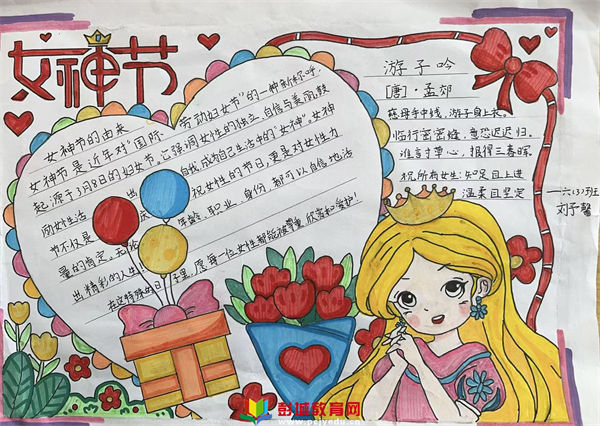 女神节
女神节的由来
女神节是近年对"国际劳动妇女节"的一种新称呼,
起源于3月8日的妇女节。它强调女性的独立、自信与美丽,鼓
励女性活出自我,成为自己生活中的"女神"。女神
节不仅是庆祝女性的节日,更是对女性力
量的肯定,无论年龄、职业、身份,都可以自信地活
出精彩的人生!
在这特殊的日子里,愿每一位女性都能被尊重、欣赏和爱护!
游子吟
[唐]·孟郊
慈母手中线,游子身上衣。
临行密密缝,意恐迟迟归。
谁言寸草心,报得三春晖。
祝所有女生:知足且上进
温柔且坚定
——六(3)班
刘予馨
彭城教育网
www.pcjyedu.cn